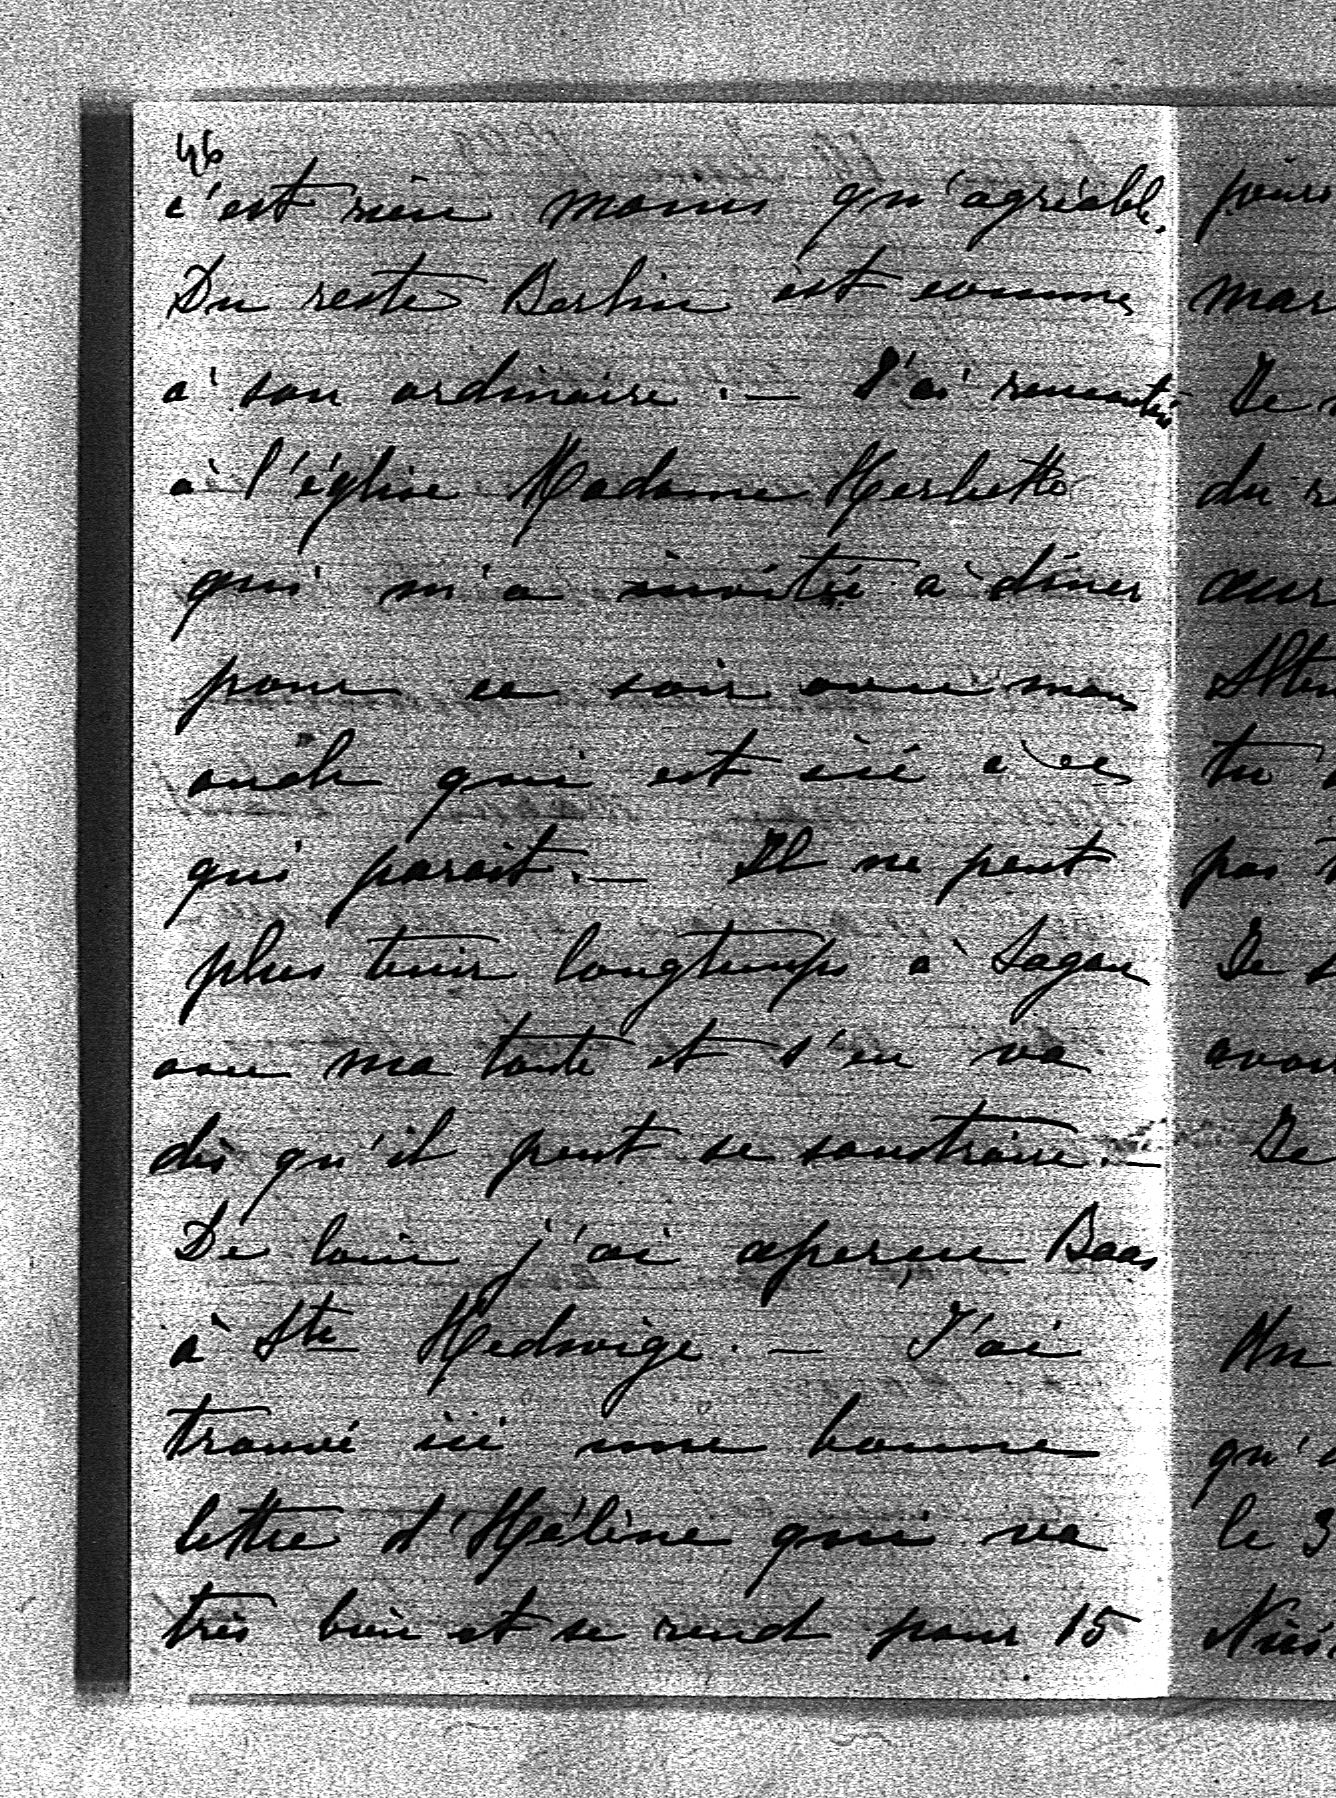 46
c'est rien moins qu'agréable.
Du reste Berlin est comme
à son ordinaire. — J'ai rencontré
à l'église Madame Herbette
qui m'a invitée à diner
pour ce soir avec mon
oncle qui est ici à ce
qui parait. — Il ne peut
plus tenir longtemps à Sagan
avec ma tante et s'en va
dès qu'il peut se soustraire. —
De loin j'ai aperçu Baas
à Ste Hedwige. — J'ai
trouvé ici une bonne
lettre d'Hélène qui va
très bien et se rend pour 15
jours
mar
Je
du
tu
pas
Je
Je
Un
qu'
le 3